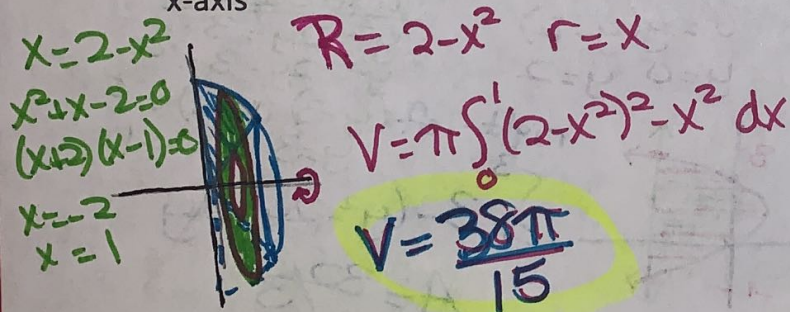 x-axis
x=2-x²
x²+x-2=0
(x+2)(x-1)=0
x=-2
x=1
R=2-x² r=x
V=π∫₀¹(2-x²)²-x² dx
V=38π/15